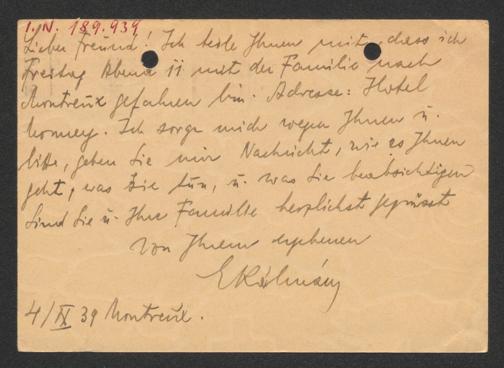 I. N. 189.939
Lieber Freund! Ich teile Ihnen mit, dass ich
Freitag Abend 11 mit der Familie nach
Montreux gefahren bin. Adresse: Hotel
Monney. Ich sorge mich wegen Ihnen u.
bitte, geben Sie mir Nachricht, wie es Ihnen
geht, was Sie tun, u. was Sie beabsichtigen
Sind Sie u. Ihre Familie herzlichst gegrüsst
von Ihrem ergebenen
EKálmán
4/IX 39 Montreux.